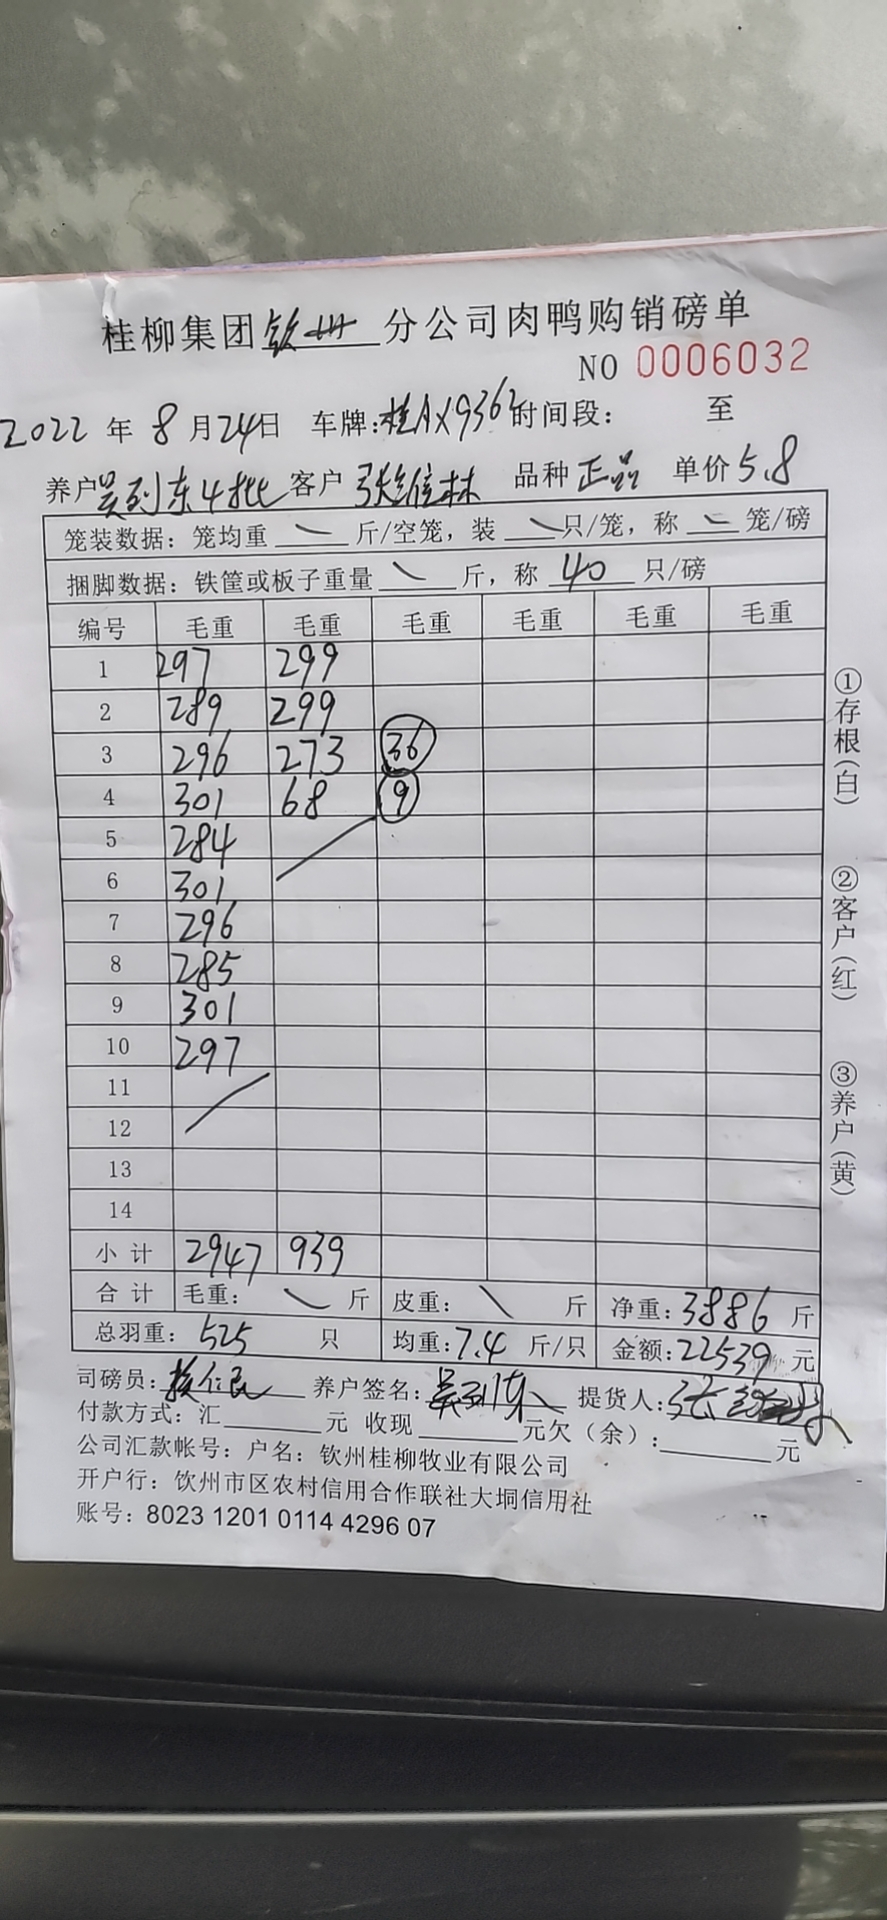 桂柳集团钦州分公司肉鸭购销磅单
NO 0006032
2022年8月24日 车牌:桂AX9362时间段: 至
养户吴列东4批 客户 张维林 品种 正品 单价5.8
笼装数据: 笼均重 斤/空笼, 装 只/笼, 称 笼/磅
捆脚数据: 铁筐或板子重量 斤, 称 40 只/磅
编号 毛重 毛重 毛重 毛重 毛重 毛重
1 297 299
2 289 299
3 296 273 36
4 301 68 9
5 284
6 301
7 296
8 285
9 301
10 297
11
12
13
14
小计 2947 939
合计 毛重: 斤 皮重: 斤 净重:3886 斤
总羽重: 525 只 均重:7.4 斤/只 金额:22539 元
司磅员: 养户签名: 吴列东 提货人:张
付款方式: 汇 元 收现 元欠(余): 元
公司汇款帐号: 户名: 钦州桂柳牧业有限公司
开户行: 饮州市区农村信用合作联社大垌信用社
账号: 8023 1201 0114 4296 07
①存根(白)
②客户(红)
③养户(黄)